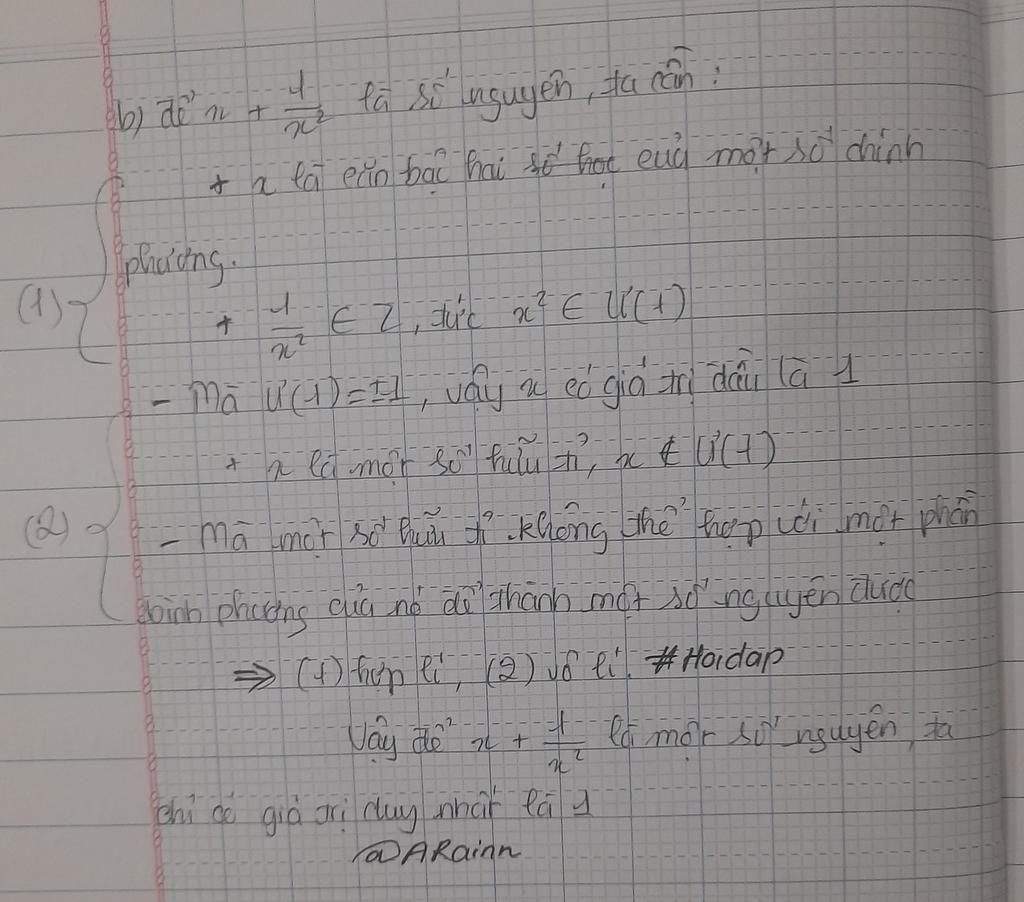 b) để x + 1/x² là số nguyên, ta cần:
+ x là căn bậc hai số học của một số chính
phương.
(1) + 1/x² ∈ Z, tức x² ∈ Ư(1)
- Mà Ư(1)=±1, vậy x có giá trị đầu là 1
+ x là một số hữu tỉ, x ∉ Ư(1)
(2) - Mà một số hữu tỉ không thể hợp với một phần
bình phương của nó để thành một số nguyên được
⇒ (1) hợp lí, (2) vô lí. #Hoidap
Vậy để x + 1/x² là một số nguyên, ta
chỉ có giá trị duy nhất là 1
@ARainn